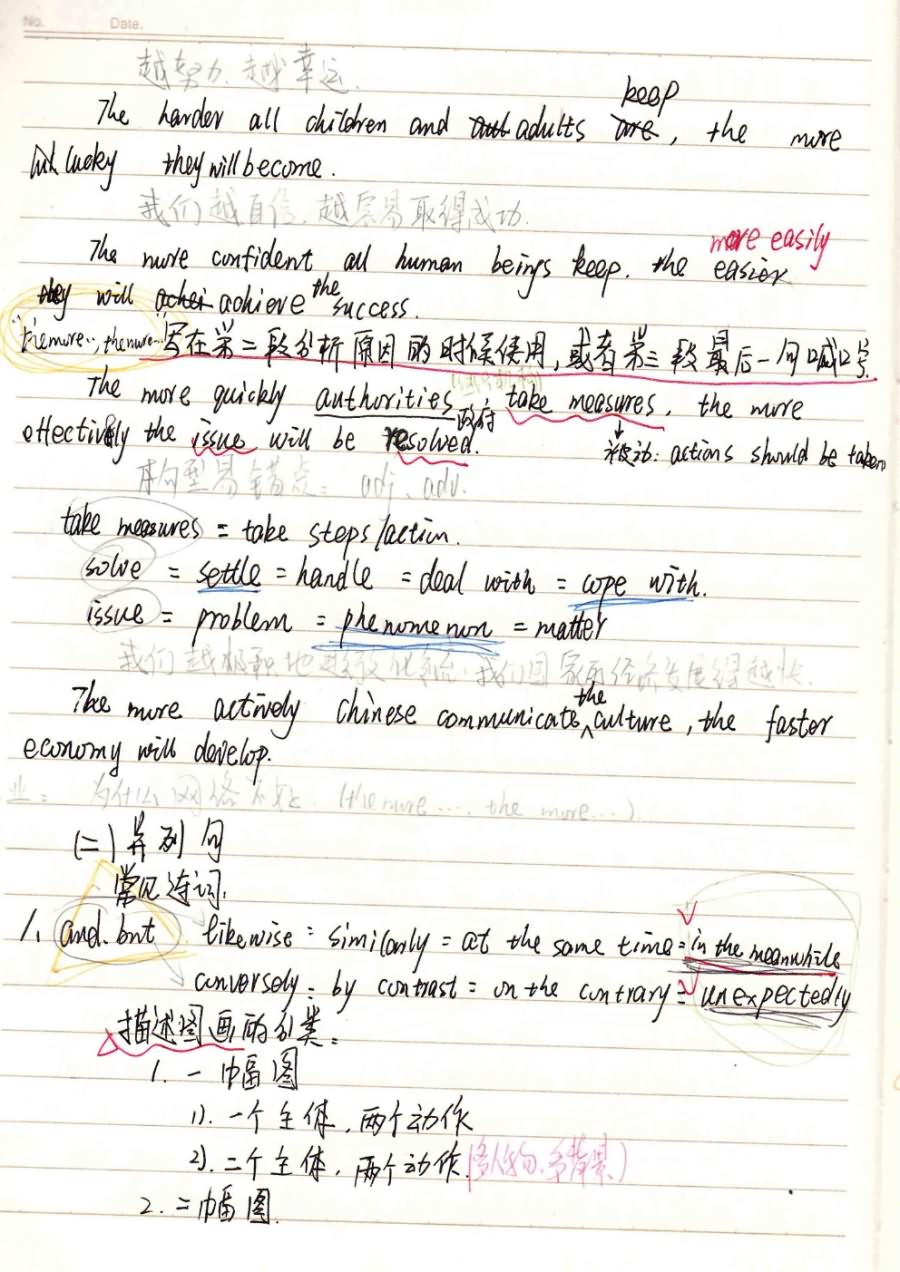 No. Date.
越努力、越幸运.
keep
The harder all children and adults are, the more
lucky they will become.
我们越自信、越容易取得成功.
more easily
The more confident all human beings keep. the easier
they will achieve the success.
"the more.., the more.." 写在第二段分析原因的时候使用, 或者第三段最后一句喊口号.
The more quickly authorities 政府 take measures, the more
effectively the issue will be resolved. 被动: actions should be taken
本句型易错点: adj、adv.
take measures = take steps/action.
solve = settle = handle = deal with = cope with.
issue = problem = phenomenon = matter
我们越积极地 文化 , 我们国家的经济发展得越快.
The more actively Chinese communicate the culture, the faster
economy will develop.
业: 为什么网络 . (the more ..., the more ...).
(二) 并列句
常见连词:
1. and. but likewise = similarly = at the same time = in the meanwhile
conversely = by contrast = on the contrary = unexpectedly
描述图画的分类:
1. 一幅图
1). 一个主体, 两个动作
2). 二个主体, 两个动作. (多人物、多背景)
2. 二幅图.